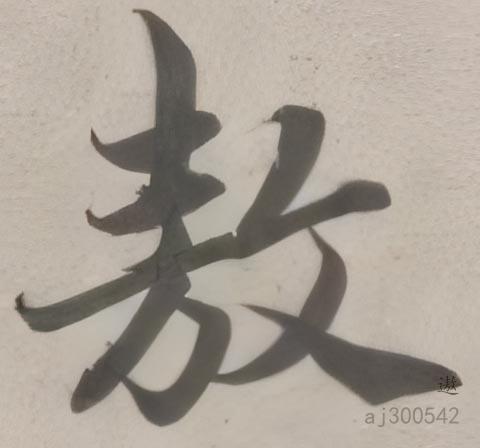 敖
遨
aj300542